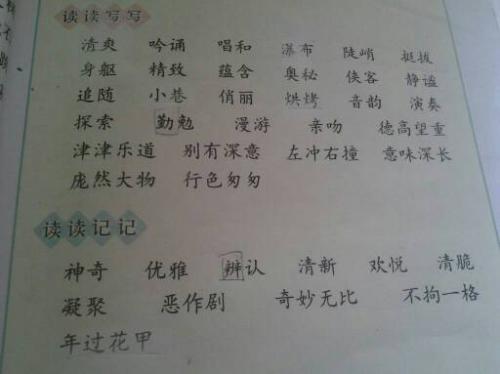 读读写写
清爽 吟诵 唱和 瀑布 陡峭 挺拔
身躯 精致 蕴含 奥秘 侠客 静谧
追随 小巷 俏丽 烘烤 音韵 演奏
探索 勤勉 漫游 亲吻 德高望重
津津乐道 别有深意 左冲右撞 意味深长
庞然大物 行色匆匆
读读记记
神奇 优雅 辨认 清新 欢悦 清脆
凝聚 恶作剧 奇妙无比 不拘一格
年过花甲